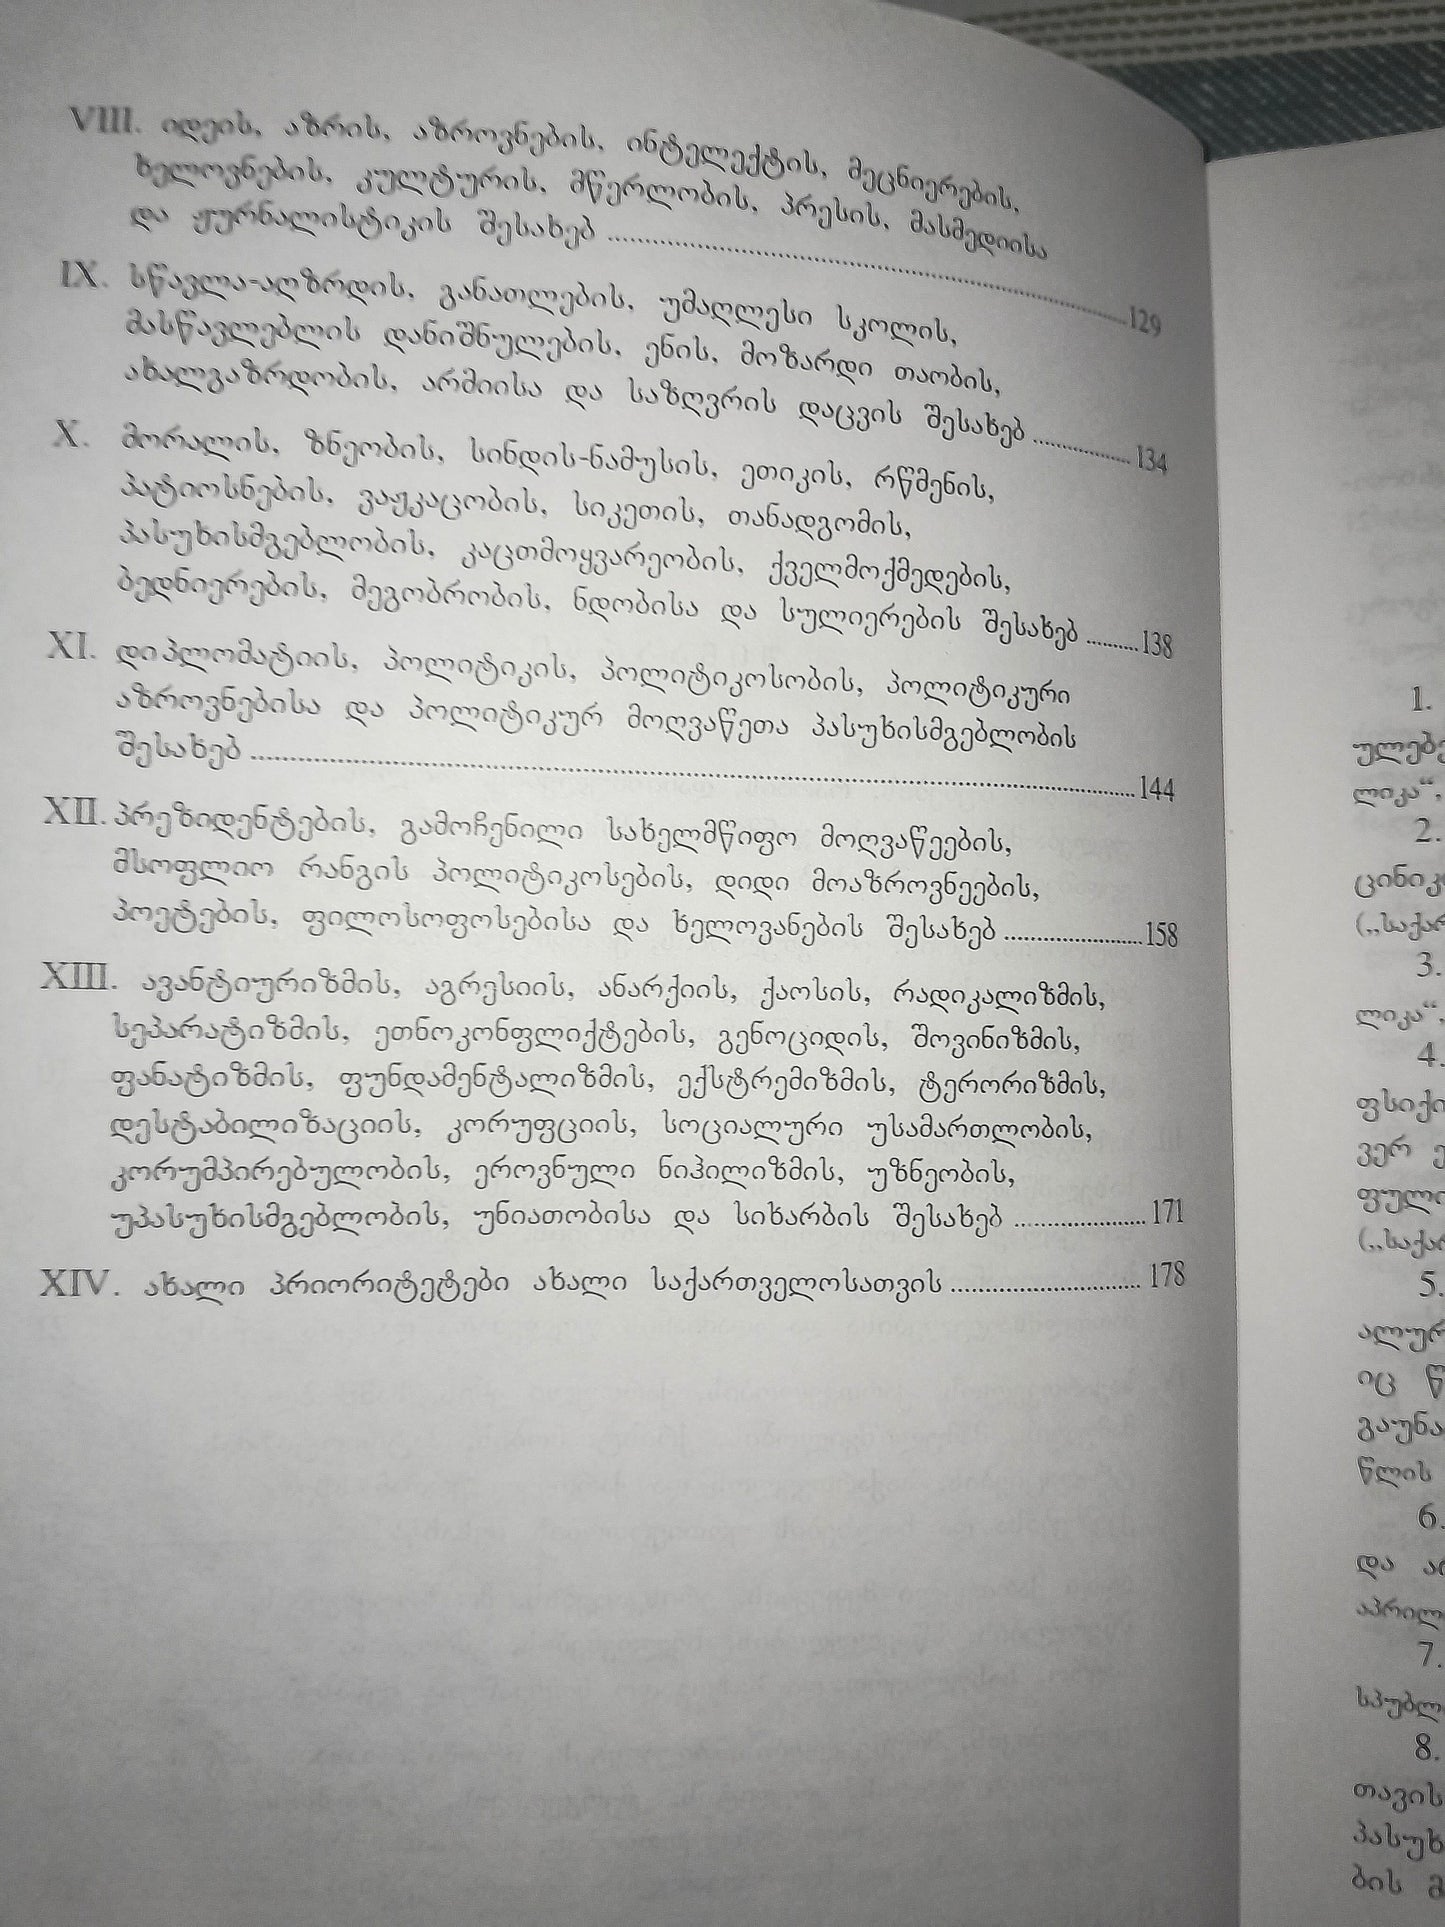 VIII. იდეის, აზრის, აზროვნების, ინტელექტის, მეცნიერების,
ხელოვნების, კულტურის, მწერლობის, პრესის, მასმედიისა
და ჟურნალისტიკის შესახებ ..... 129
IX. სწავლა-აღზრდის, განათლების, უმაღლესი სკოლის,
მასწავლებლის დანიშნულების, ენის, მოზარდი თაობის,
ახალგაზრდობის, არმიისა და საზღვრის დაცვის შესახებ ..... 134
X. მორალის, ზნეობის, სინდის-ნამუსის, ეთიკის, რწმენის,
პატიოსნების, ვაჟკაცობის, სიკეთის, თანადგომის,
პასუხისმგებლობის, კაცთმოყვარეობის, ქველმოქმედების,
ბედნიერების, მეგობრობის, ნდობისა და სულიერების შესახებ ..... 138
XI. დიპლომატიის, პოლიტიკის, პოლიტიკოსობის, პოლიტიკური
აზროვნებისა და პოლიტიკურ მოღვაწეთა პასუხისმგებლობის
შესახებ ..... 144
XII. პრეზიდენტების, გამოჩენილი სახელმწიფო მოღვაწეების,
მსოფლიო რანგის პოლიტიკოსების, დიდი მოაზროვნეების,
პოეტების, ფილოსოფოსებისა და ხელოვანების შესახებ ..... 158
XIII. ავანტიურიზმის, აგრესიის, ანარქიის, ქაოსის, რადიკალიზმის,
სეპარატიზმის, ეთნოკონფლიქტების, გენოციდის, შოვინიზმის,
ფანატიზმის, ფუნდამენტალიზმის, ექსტრემიზმის, ტერორიზმის,
დესტაბილიზაციის, კორუფციის, სოციალური უსამართლობის,
კორუმპირებულობის, ეროვნული ნიჰილიზმის, უზნეობის,
უპასუხისმგებლობის, უნიათობისა და სიხარბის შესახებ ..... 171
XIV. ახალი პრიორიტეტები ახალი საქართველოსათვის ..... 178
1.
ულებე
ლიკა“,
2.
ცინიკ
(„საქარ
3.
ლიკა“,
4.
ფსიქი
ვერ
ფული
(„საქარ
5.
ალურ
იც წ
გაუნა
წლის
6.
და
აპრილ
7.
სპუბლ
8.
თავის
პასუხ
ბის მ